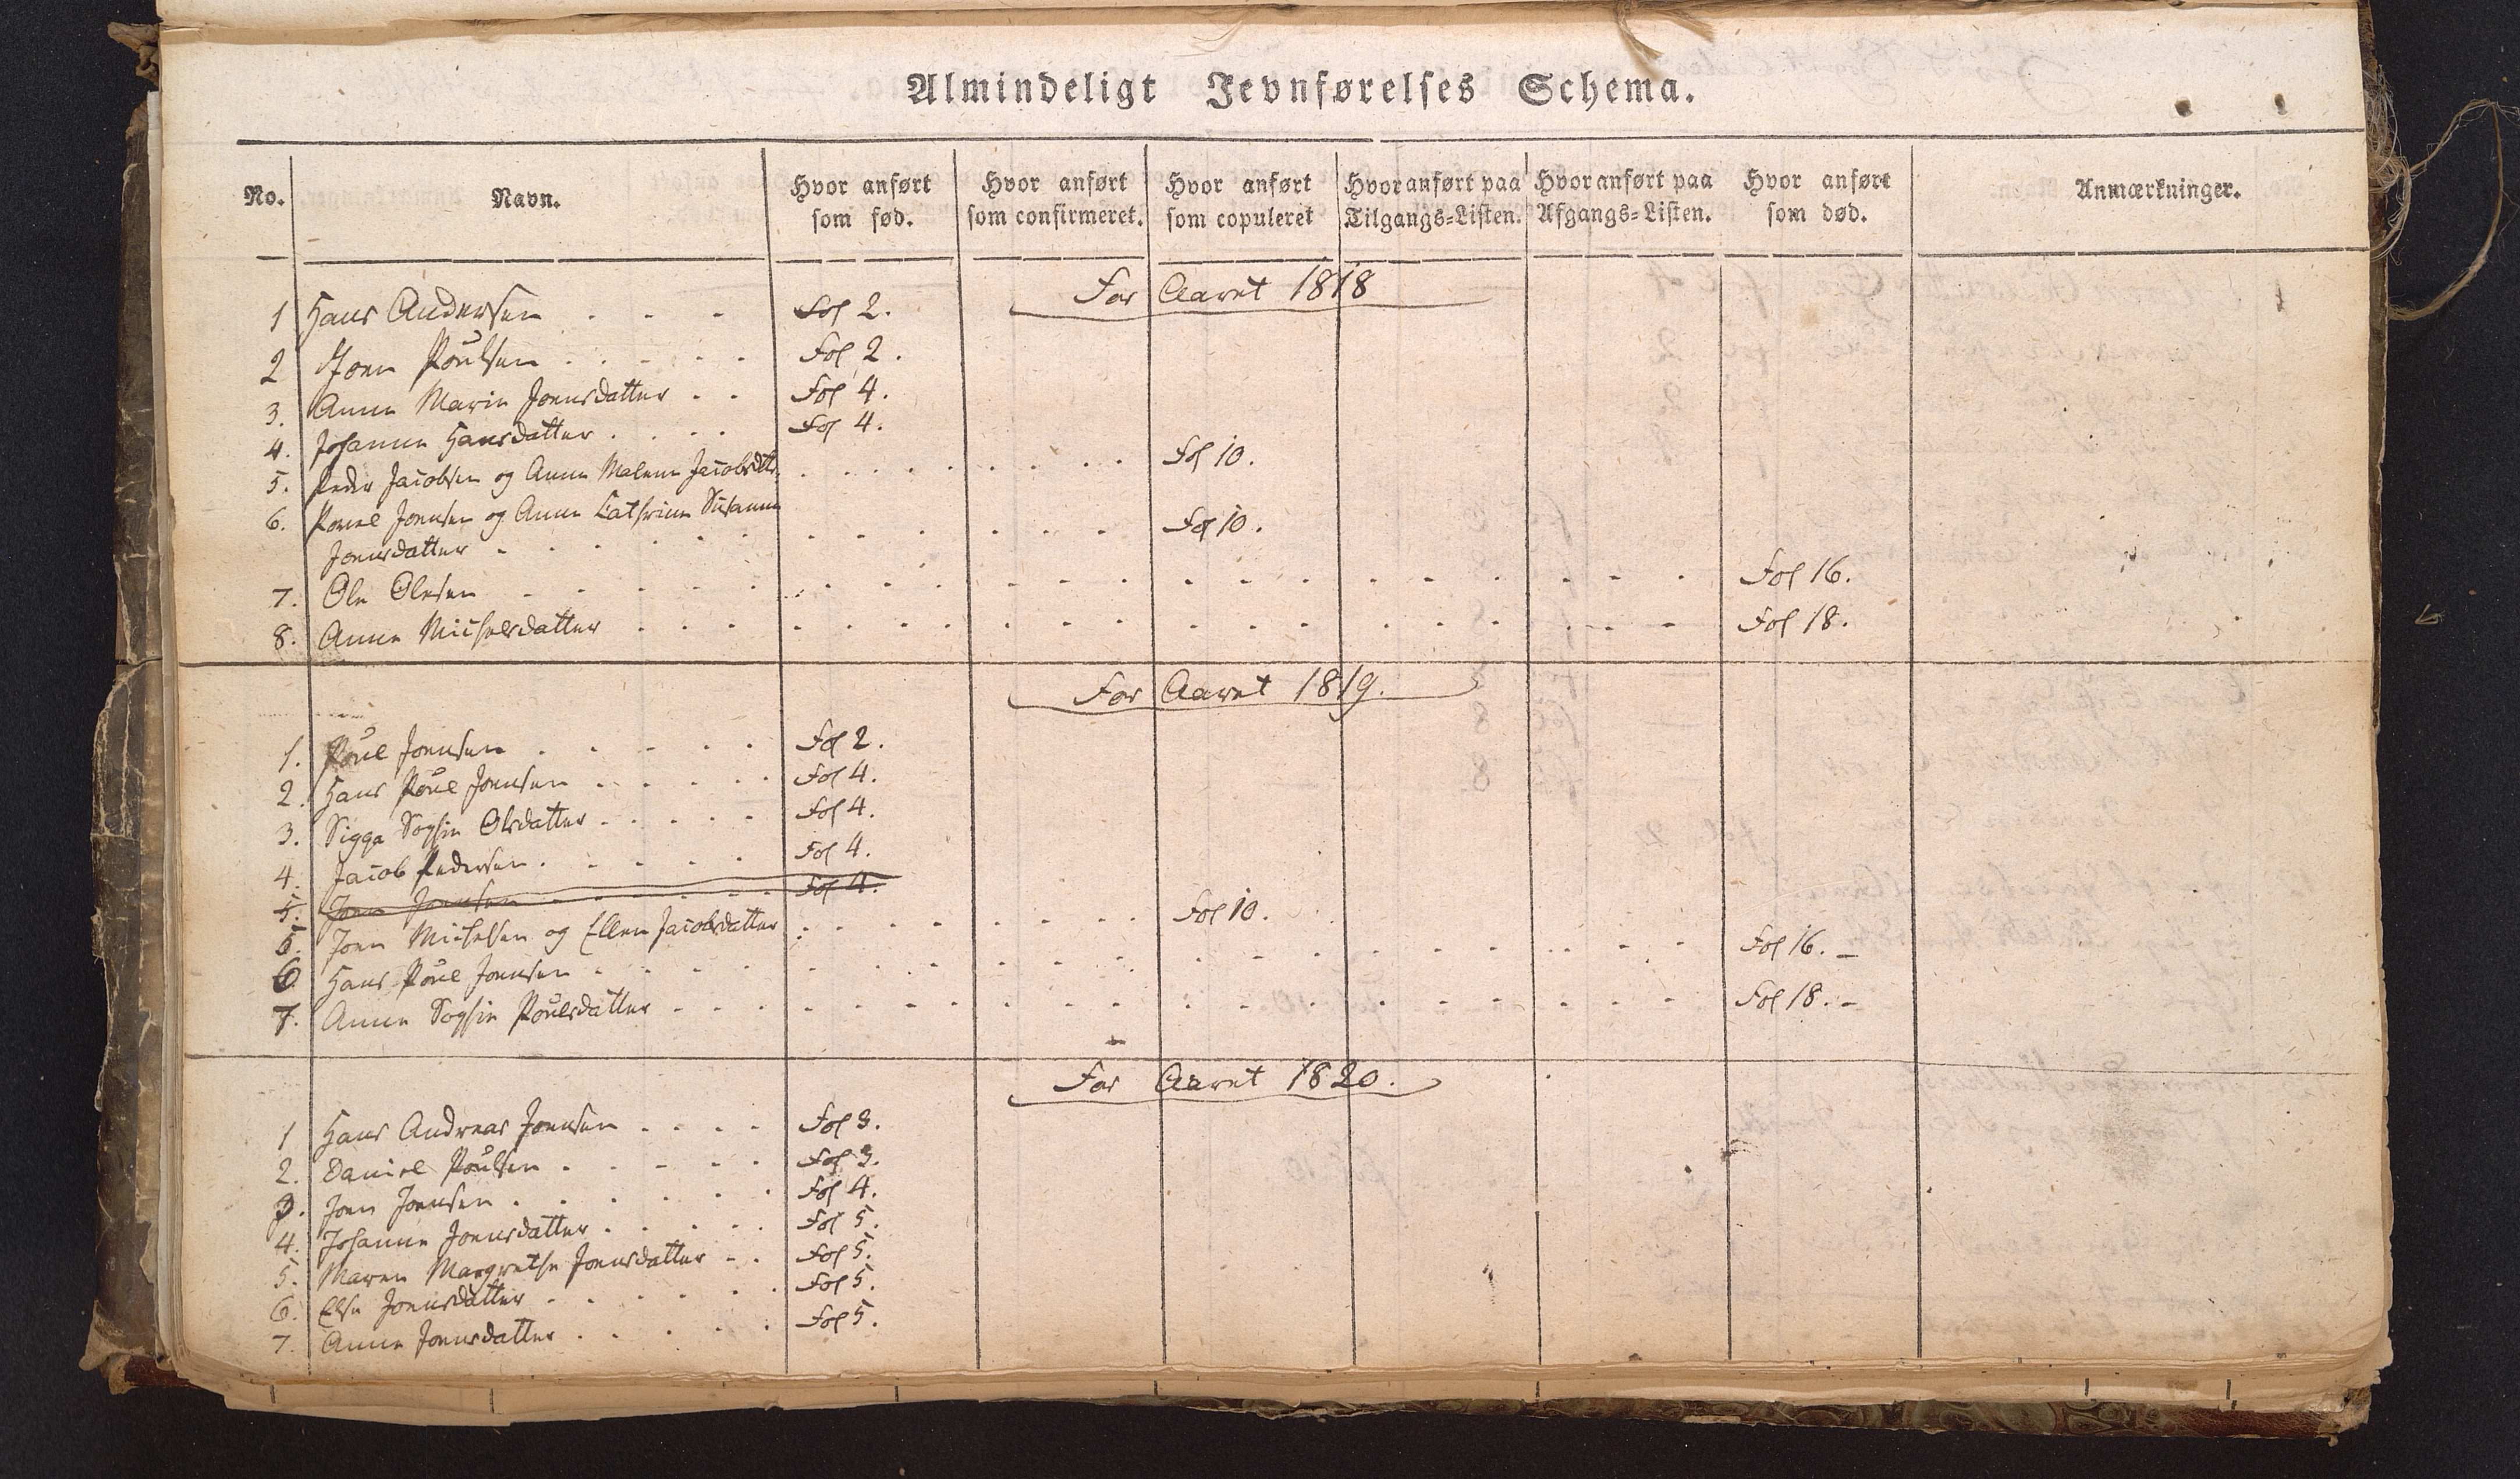 Almindeligt Jevnførelses Schema.
No. Navn. Hvor anført som fød. Hvor anført som confirmeret. Hvor anført som copuleret Hvor anført paa Tilgangs=Listen. Hvor anført paa Afgangs=Listen. Hvor anført som død. Anmærkninger.
For Aaret 1818
1 Hans Andersen . . . Fol 2.
2 Joen Poulsen . . . . . Fol 2.
3. Anne Marie Joensdatter . . Fol 4.
4. Johanne Hansdatter . . . . Fol 4.
5. Peder Jacobsen og Anne Malene Jacobsdtr. . . . . . . . . . Fol 10.
6. Pouel Joensen og Anne Cathrine Susanne
Joensdatter . . . . . . . . . . . . Fol 10.
7. Ole Olesen . . . . . . . . . . . . Fol 16.
8. Anne Michelsdatter . . . . . . . . . . . . Fol 18.
For Aaret 1819.
1. Poul Joensen . . . . . Fol 2.
2. Hans Poul Joensen . . . . . Fol 4.
3. Sigga Sophie Olsdatter . . . . . Fol 4.
4. Jacob Pedersen . . . . . Fol 4.
5. Joen Joensen . . . . . Fol 4.
5. Joen Michelsen og Ellen Jacobsdatter . . . . . . . Fol 10.
6 Hans Poul Joensen . . . . . . . . . . . . Fol 16. -
7. Anne Sophie Poulsdatter . . . . . . . . . . . . Fol 18. -
For Aaret 1820.
1 Hans Andreas Joensen . . . . Fol 3.
2. Daniel Poulsen . . . . . Fol 3.
3. Joen Joensen . . . . . . Fol 4.
4. Johanne Joensdatter . . . . . Fol 5.
5. Maren Margrethe Joensdatter . . Fol 5.
6. Else Joensdatter . . . . . . Fol 5.
7. Anne Joensdatter . . . . . Fol 5.